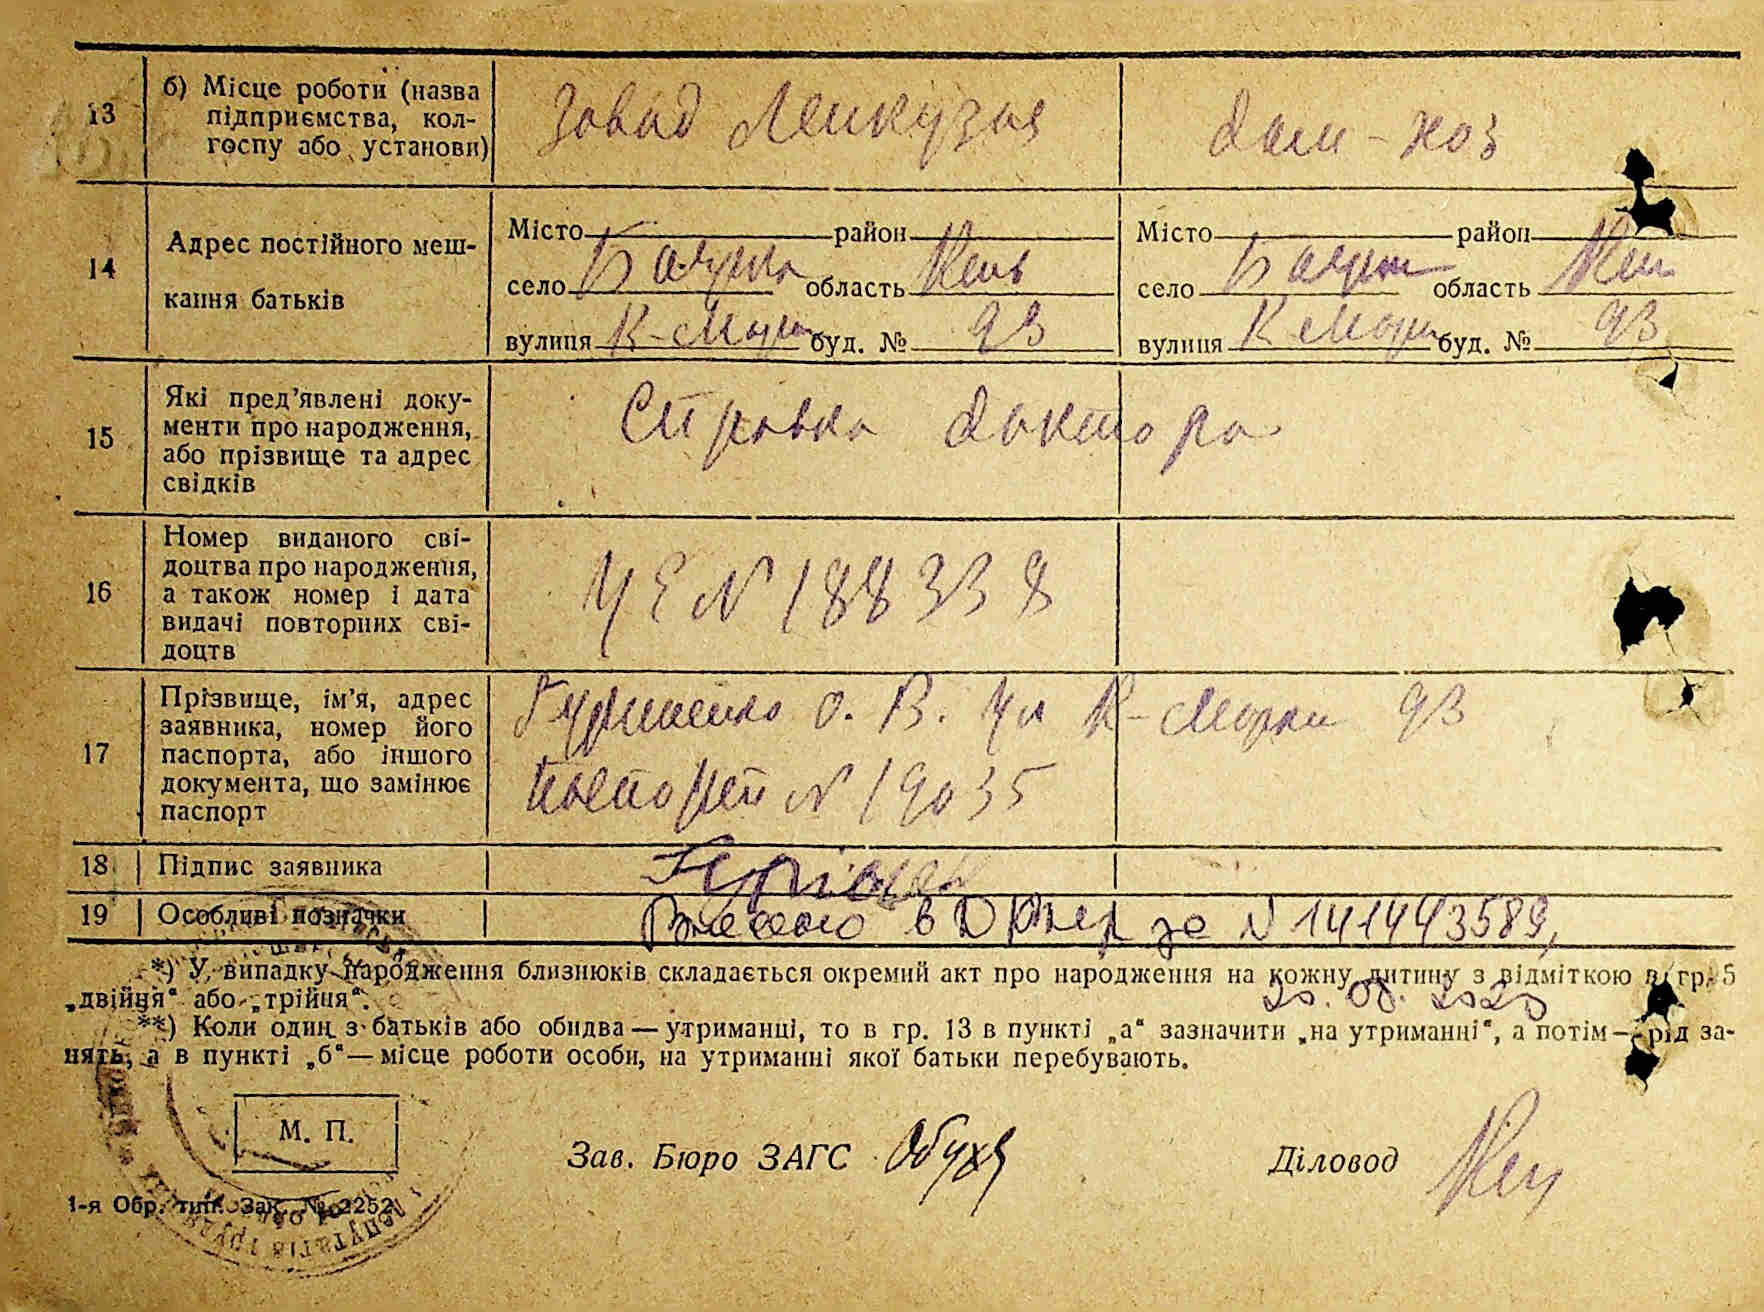 13
б) Місце роботи (назва
підприємства, кол-
госпу або установи)
Завод Ленкузня
дом-хоз
14
Адрес постійного меш-
кання батьків
Місто район
село область
вулиця К-Маркс буд. № 93
Місто район
село область
вулиця К Маркс буд. № 93
15
Які пред'явлені доку-
менти про народження,
або прізвище та адрес
свідків
Справка доктора
16
Номер виданого сві-
доцтва про народження,
а також номер і дата
видачі повторних сві-
доцтв
УЕ N 188338
17
Прізвище, ім'я, адрес
заявника, номер його
паспорта, або іншого
документа, що замінює
паспорт
О. В. Ул К-Маркса 93
Паспорт N 19035
18 Підпис заявника
19 Особливі позначки
Внесено в ДРАЦС за N 141443589,
*) У випадку народження близнюків складається окремий акт про народження на кожну дитину з відміткою в гр. 5
„двійня" або „трійня".
**) Коли один з батьків або обидва — утриманці, то в гр. 13 в пункті „а" зазначити „на утриманні", а потім — рід за-
нять, а в пункті „б" — місце роботи особи, на утриманні якої батьки перебувають.
М. П.
Зав. Бюро ЗАГС
Діловод
1-я Обр. тип. Зак. № 2252